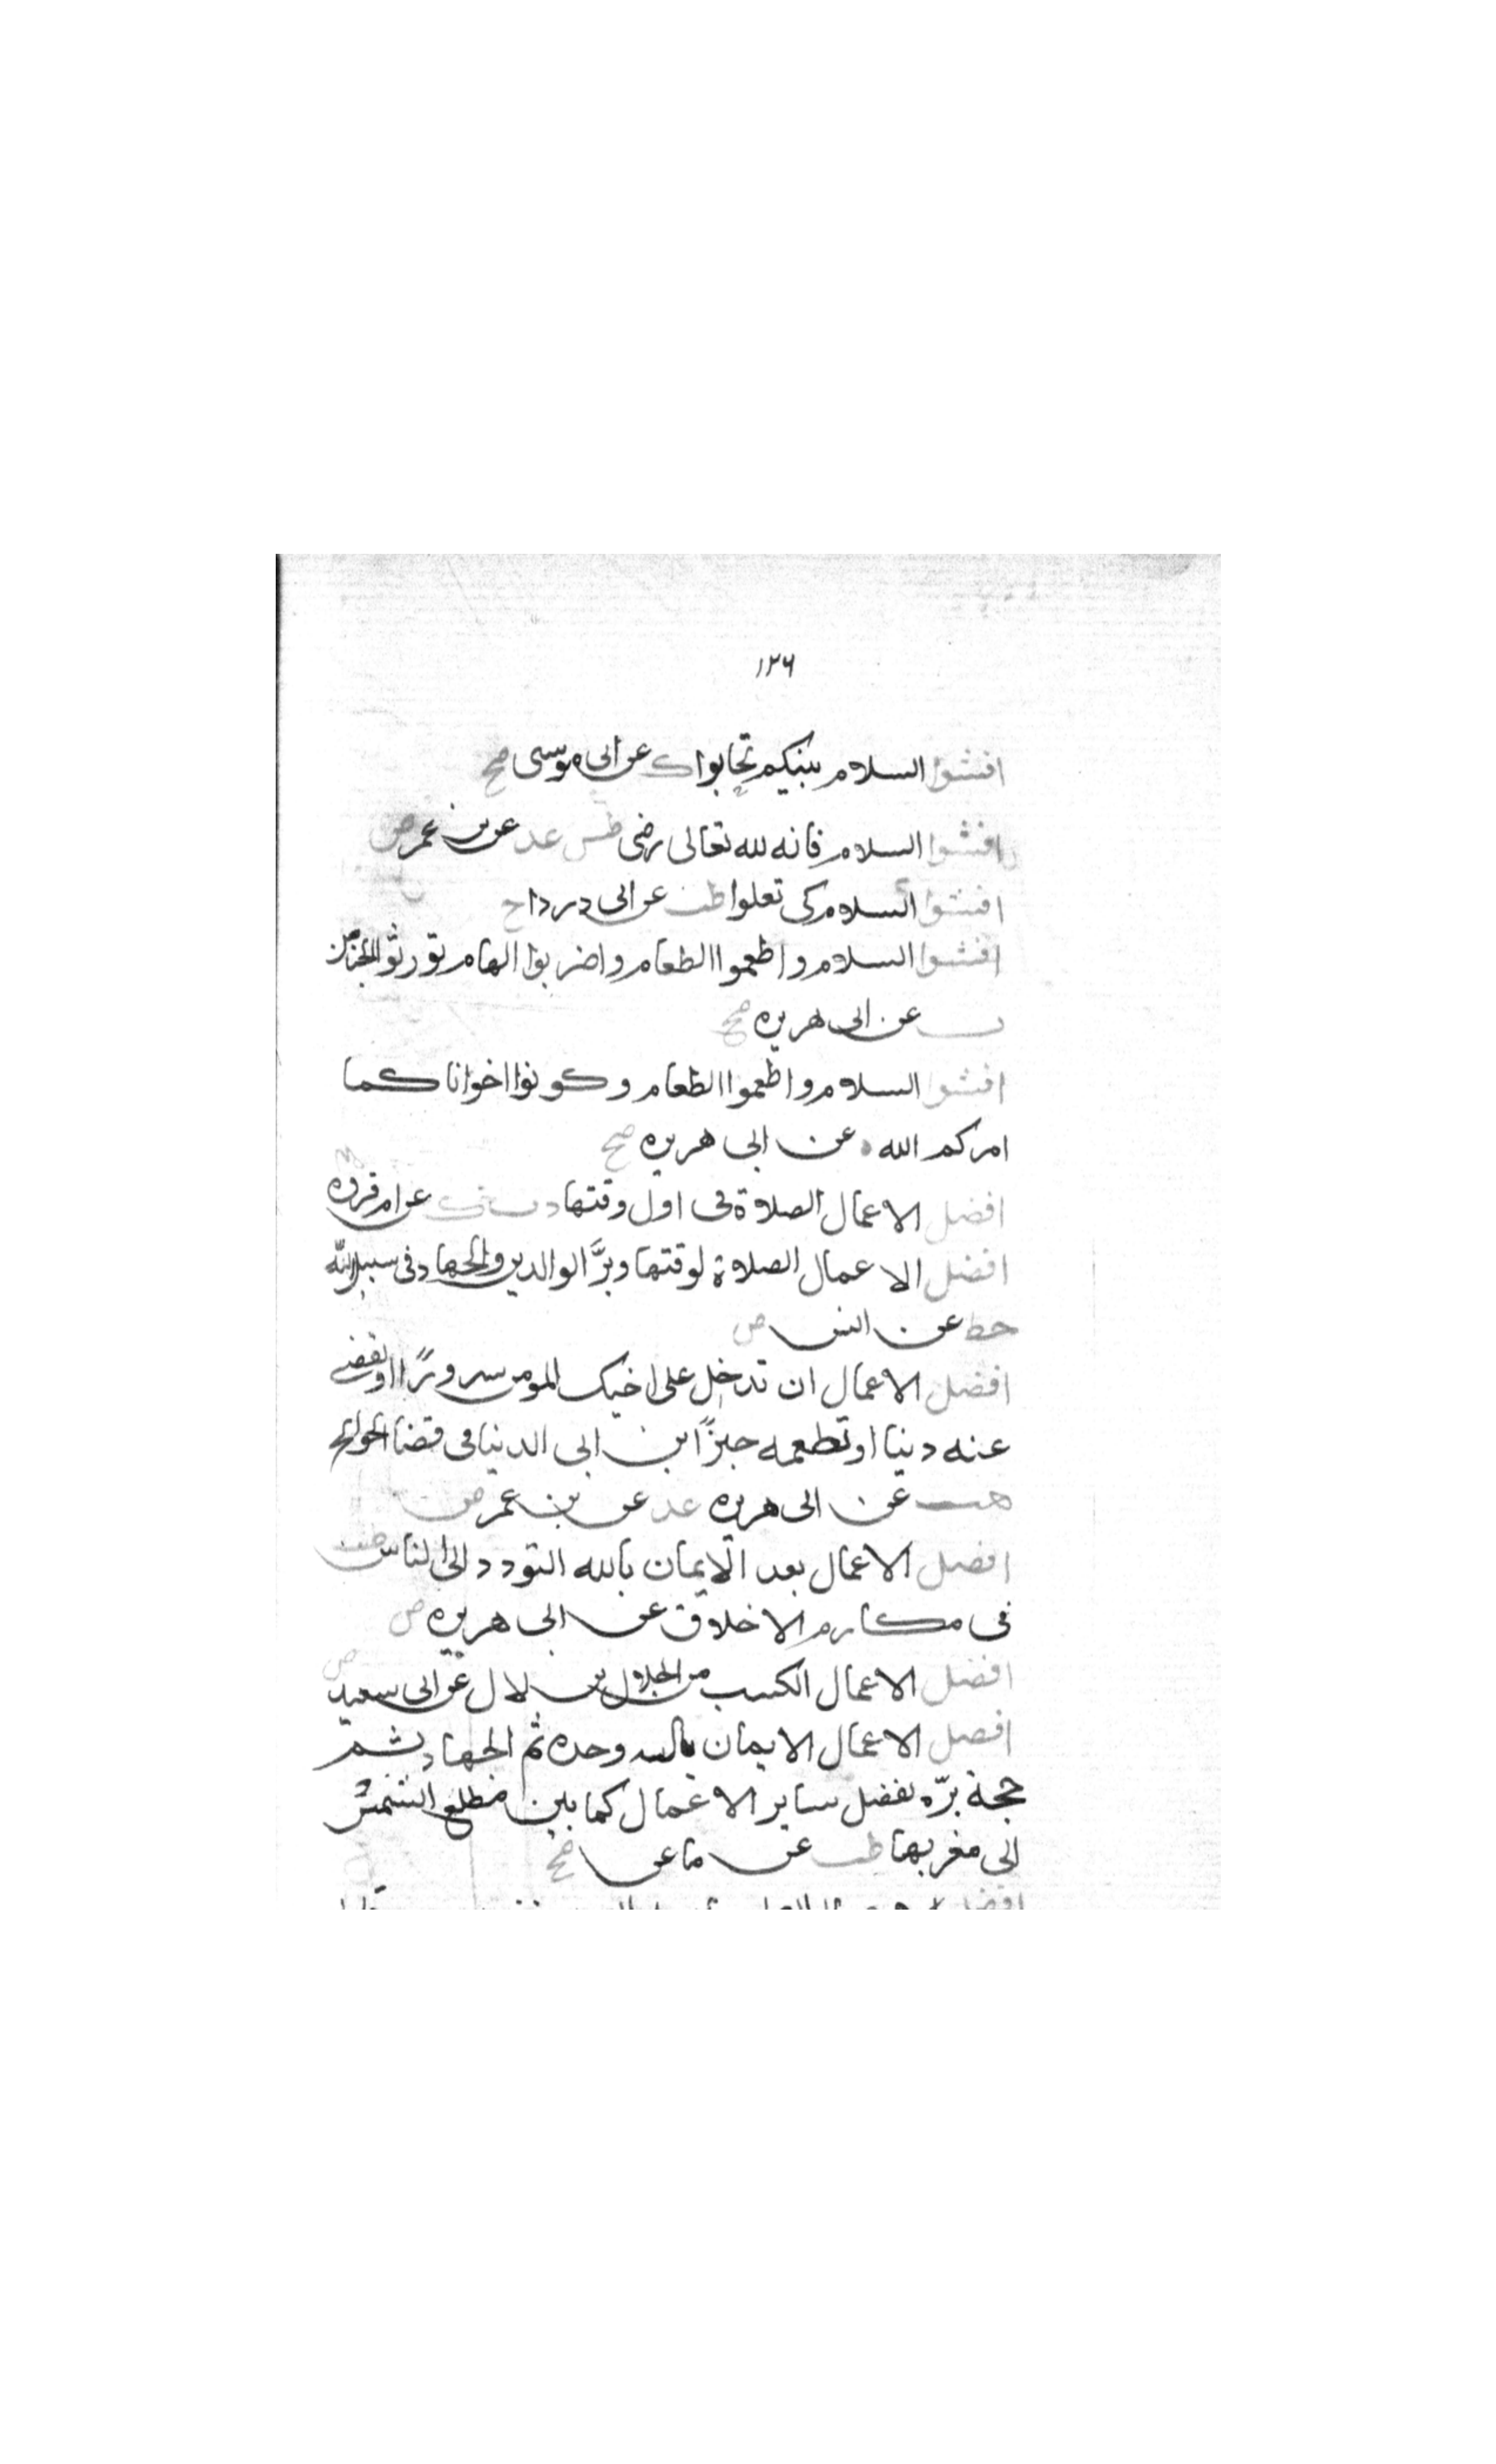 ١٢٦
افشوا السلام بينكم تحابوا ك عن ابى موسى صح
افشوا السلام فانه لله تعالى رضى طس عد عن بن عمر ض
افشوا السلام كى تعلوا طب عن ابى درداح
افشوا السلام واطعموا الطعام واضربوا الهام تورثوا الجنان
ت عن ابى هريره صح
افشوا السلام واطعموا الطعام وكونوا اخوانا كما
امركم الله ه عن ابى هريره صح
افضل الاعمال الصلاة فى اول وقتها د ت ك عن ام فروه
افضل الاعمال الصلاة لوقتها وبرَّ الوالدين والجهاد فى سبيل الله
خط عن انس ض
افضل الاعمال ان تدخل على اخيك المومن سرورًا او تقضى
عنه دينا او تطعمه خبزًا ابن ابى الدنيا فى قضا الحوائج
هب عن ابى هريره عد عن بن عمر ض
افضل الاعمال بعد الايمان بالله التودد الى الناس طب
فى مكارم الاخلاق عن ابى هريره ض
افضل الاعمال الكسب من الحلال بن لال عن ابى سعيد ض
افضل الاعمال الايمان بالله وحده ثم الجهاد ثم
حجة برّه تفضل ساير الاعمال كما بين مطلع الشمس
الى مغربها طب عن ماعن صح